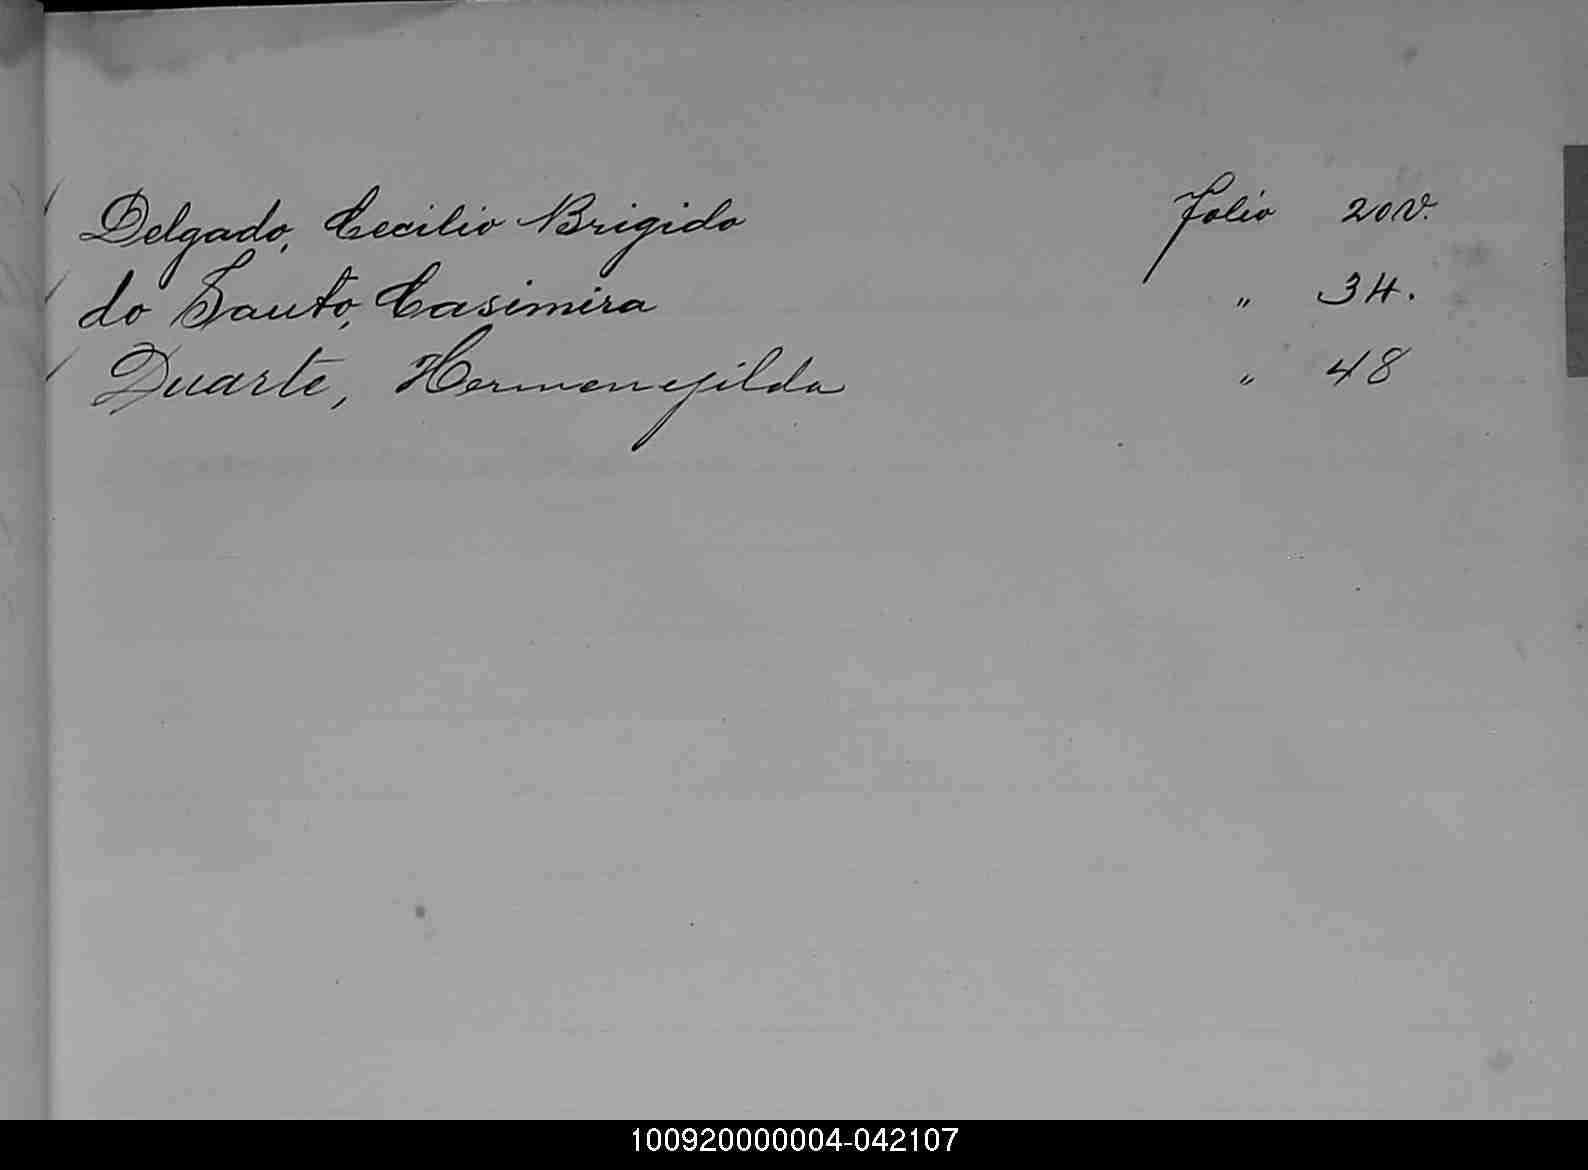 Delgado, Cecilio Brigido Folio 20v.
do Santo, Casimira " 34.
Duarte, Hermenegilda " 48
100920000004-042107